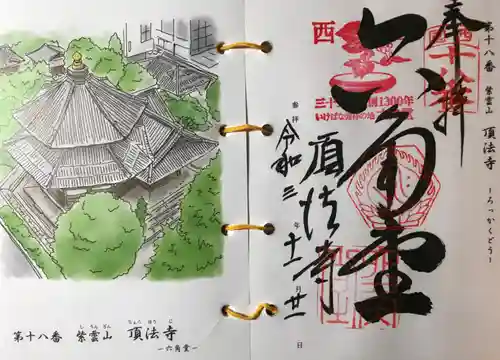 第十八番 紫雲山 頂法寺 ―ろっかくどう―
奉拝
六角堂
西国
十八番
三十
創1300年
いけばな発祥の地
参拝
令和三年十一月廿一日
頂法寺
第十八番 紫雲山 頂法寺
しうんざん ちょうほうじ
―六角堂―